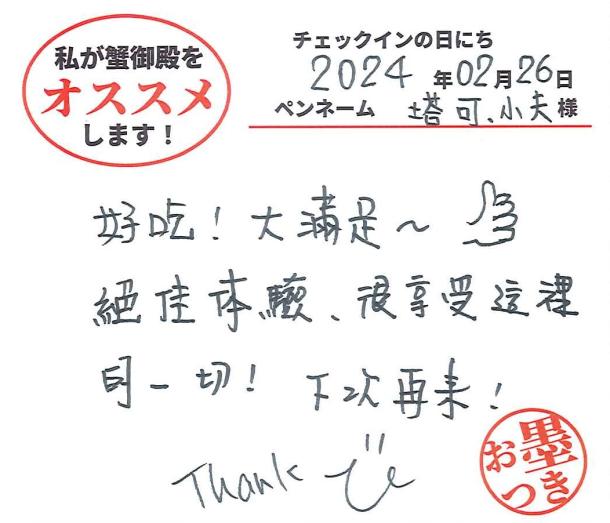 私が蟹御殿を
オススメ
します！
チェックインの日にち
2024 年02月26日
ペンネーム 塔可、小夫様
好吃！大滿足～
絕佳体驗、很享受這裡
的一切！下次再来！
Thank
お墨つき